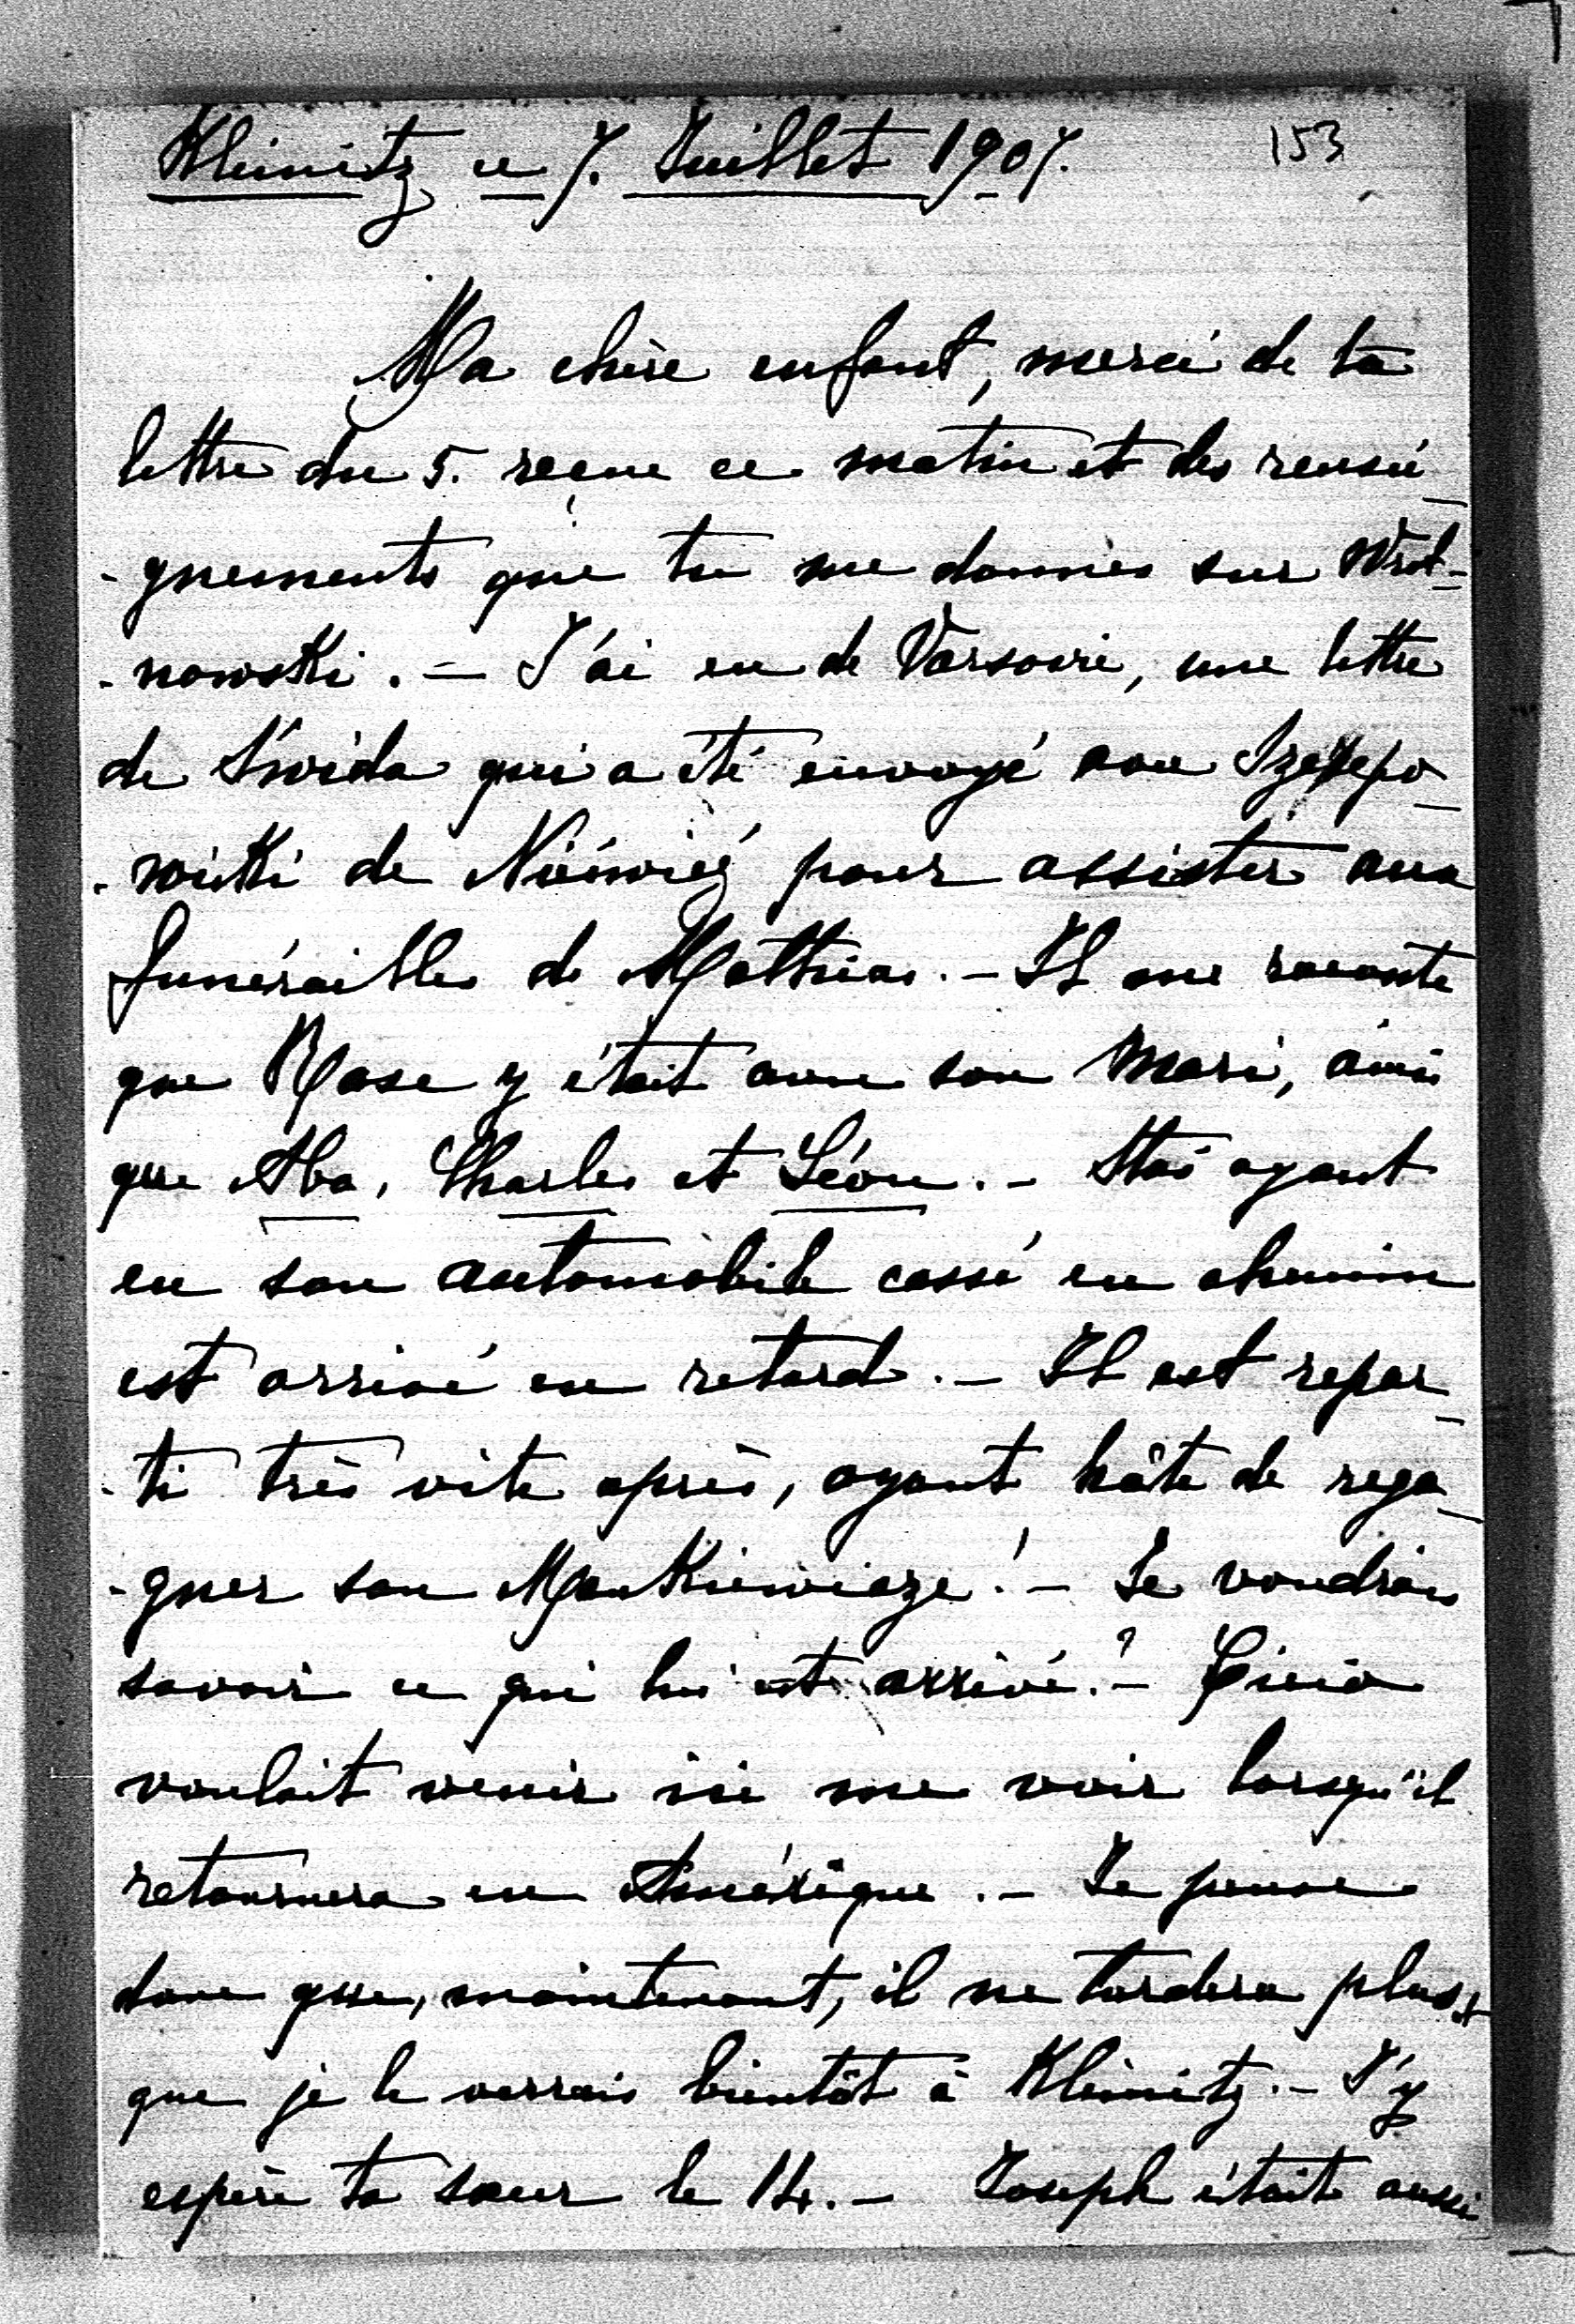 Kleinitz ce 7. Juillet 1907.
153
Ma chère enfant, merci de ta
lettre du 5. reçue ce matin et des rensei-
-gnements que tu me donnes sur Wrot-
-nowski. — J'ai eu de Varsovie, une lettre
de Świda qui a été envoyé par
de pour assister aux
funérailles de Mathias. — Il me raconte
que Rose y était avec son mari, ainsi
que Aba, Charles et Léon. — Stas ayant
eu son automobile cassé en chemin
est arrivé en retard. — Il est repar-
-ti très vite après, ayant hâte de rega-
-gner son Mankiewicze! — Je voudrais
savoir ce qui lui est arrivé? —
voulait venir ici me voir lorsqu'il
retournera en Amérique. — Je pense
donc que, maintenant, il ne tardera plus et
que je le verrais bientôt à Kleinitz. — J'y
espère ta sœur le 14. — Joseph était aussi